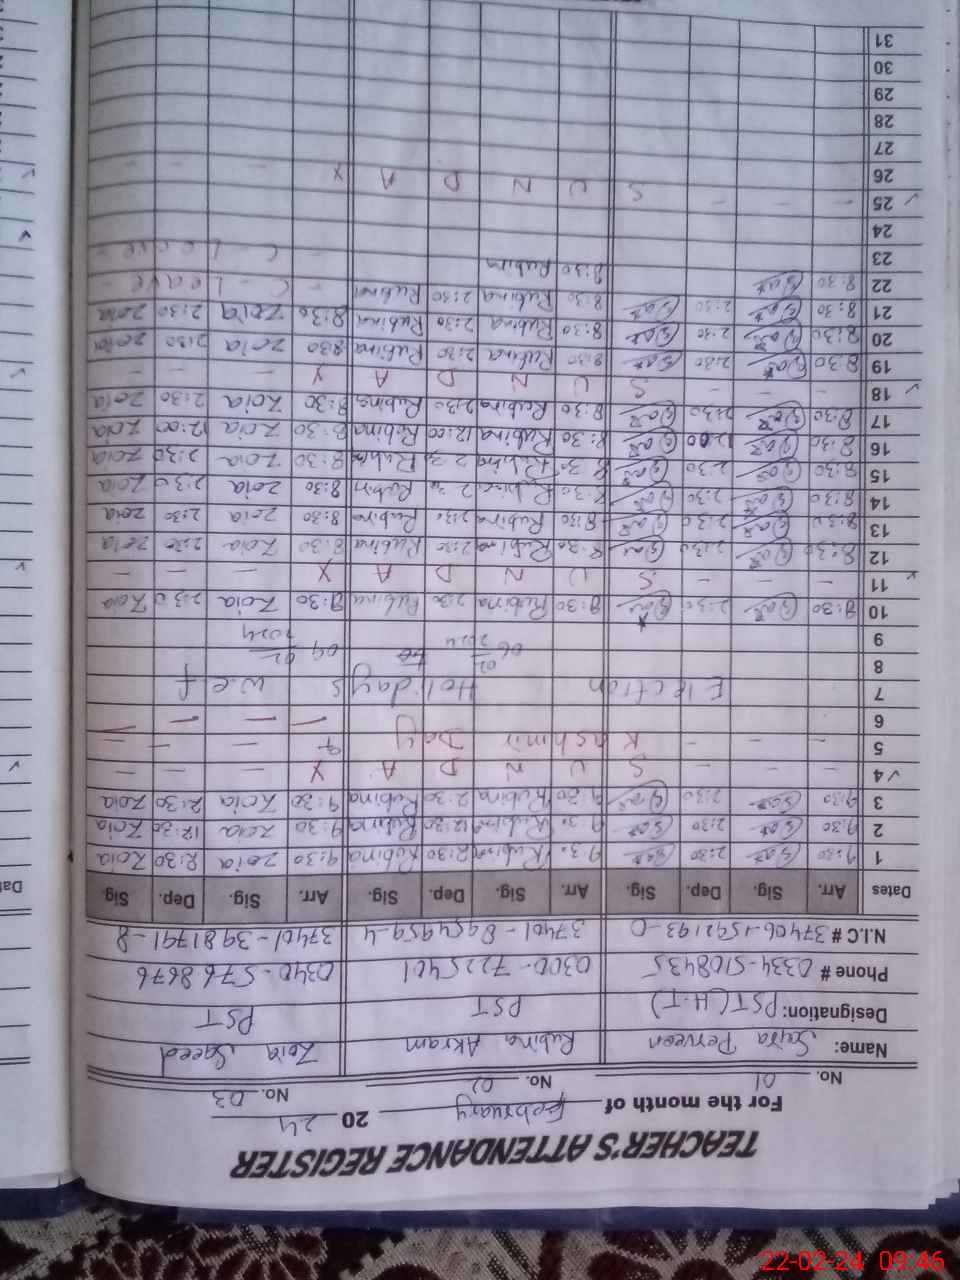 TEACHER'S ATTENDANCE REGISTER
For the month of February 20 24
No. 01 No. 02 No. 03
Name: Perveen Rubina Akram Zoia Saeed
Designation: PST(H.T) PST PST
Phone # 0334-5108435 0300-7225401 0340-5768676
N.I.C # 37406-1592193-0 37401-8954959-4 37401-3981791-8
Dates Arr. Sig. Dep. Sig. Arr. Sig. Dep. Sig. Arr. Sig. Dep. Sig.
1 9:30 2:30 9:30 Rubina 2:30 Rubina 9:30 Zoia 2:30 Zoia
2 9:30 2:30 9:30 Rubina 12:30 Rubina 9:30 Zoia 12:30 Zoia
3 9:30 2:30 9:30 Rubina 2:30 Rubina 9:30 Zoia 2:30 Zoia
4 - - - S U N D A Y - - -
5 - - - Kashmir Day - - -
6
7 Election Holidays w.e.f
8 06/02/2024 to 09/02/2024
9
10 8:30 2:30 8:30 Rubina 2:30 Rubina 8:30 Zoia 2:30 Zoia
11 - - - S U N D A Y - - -
12 8:30 2:30 8:30 Rubina 2:30 Rubina 8:30 Zoia 2:30 Zoia
13 8:30 2:30 8:30 Rubina 2:30 Rubina 8:30 Zoia 2:30 Zoia
14 8:30 2:30 8:30 Rubina 2:30 Rubin 8:30 Zoia 2:30 Zoia
15 8:30 2:30 8:30 Rubina 2:30 Rubina 8:30 Zoia 2:30 Zoia
16 8:30 12:00 8:30 Rubina 12:00 Rubina 8:30 Zoia 12:00 Zoia
17 8:30 2:30 8:30 Rubina 2:30 Rubina 8:30 Zoia 2:30 Zoia
18 - - - S U N D A Y - - -
19 8:30 2:30 8:30 Rubina 2:30 Rubina 8:30 Zoia 2:30 Zoia
20 8:30 2:30 8:30 Rubina 2:30 Rubina 8:30 Zoia 2:30 Zoia
21 8:30 2:30 8:30 Rubina 2:30 Rubina - C - Leave -
22 8:30 8:30 Rubina - C - Leave -
23
24
25 - - - S U N D A Y - - -
26
27
28
29
30
31
22-02-24 09:46